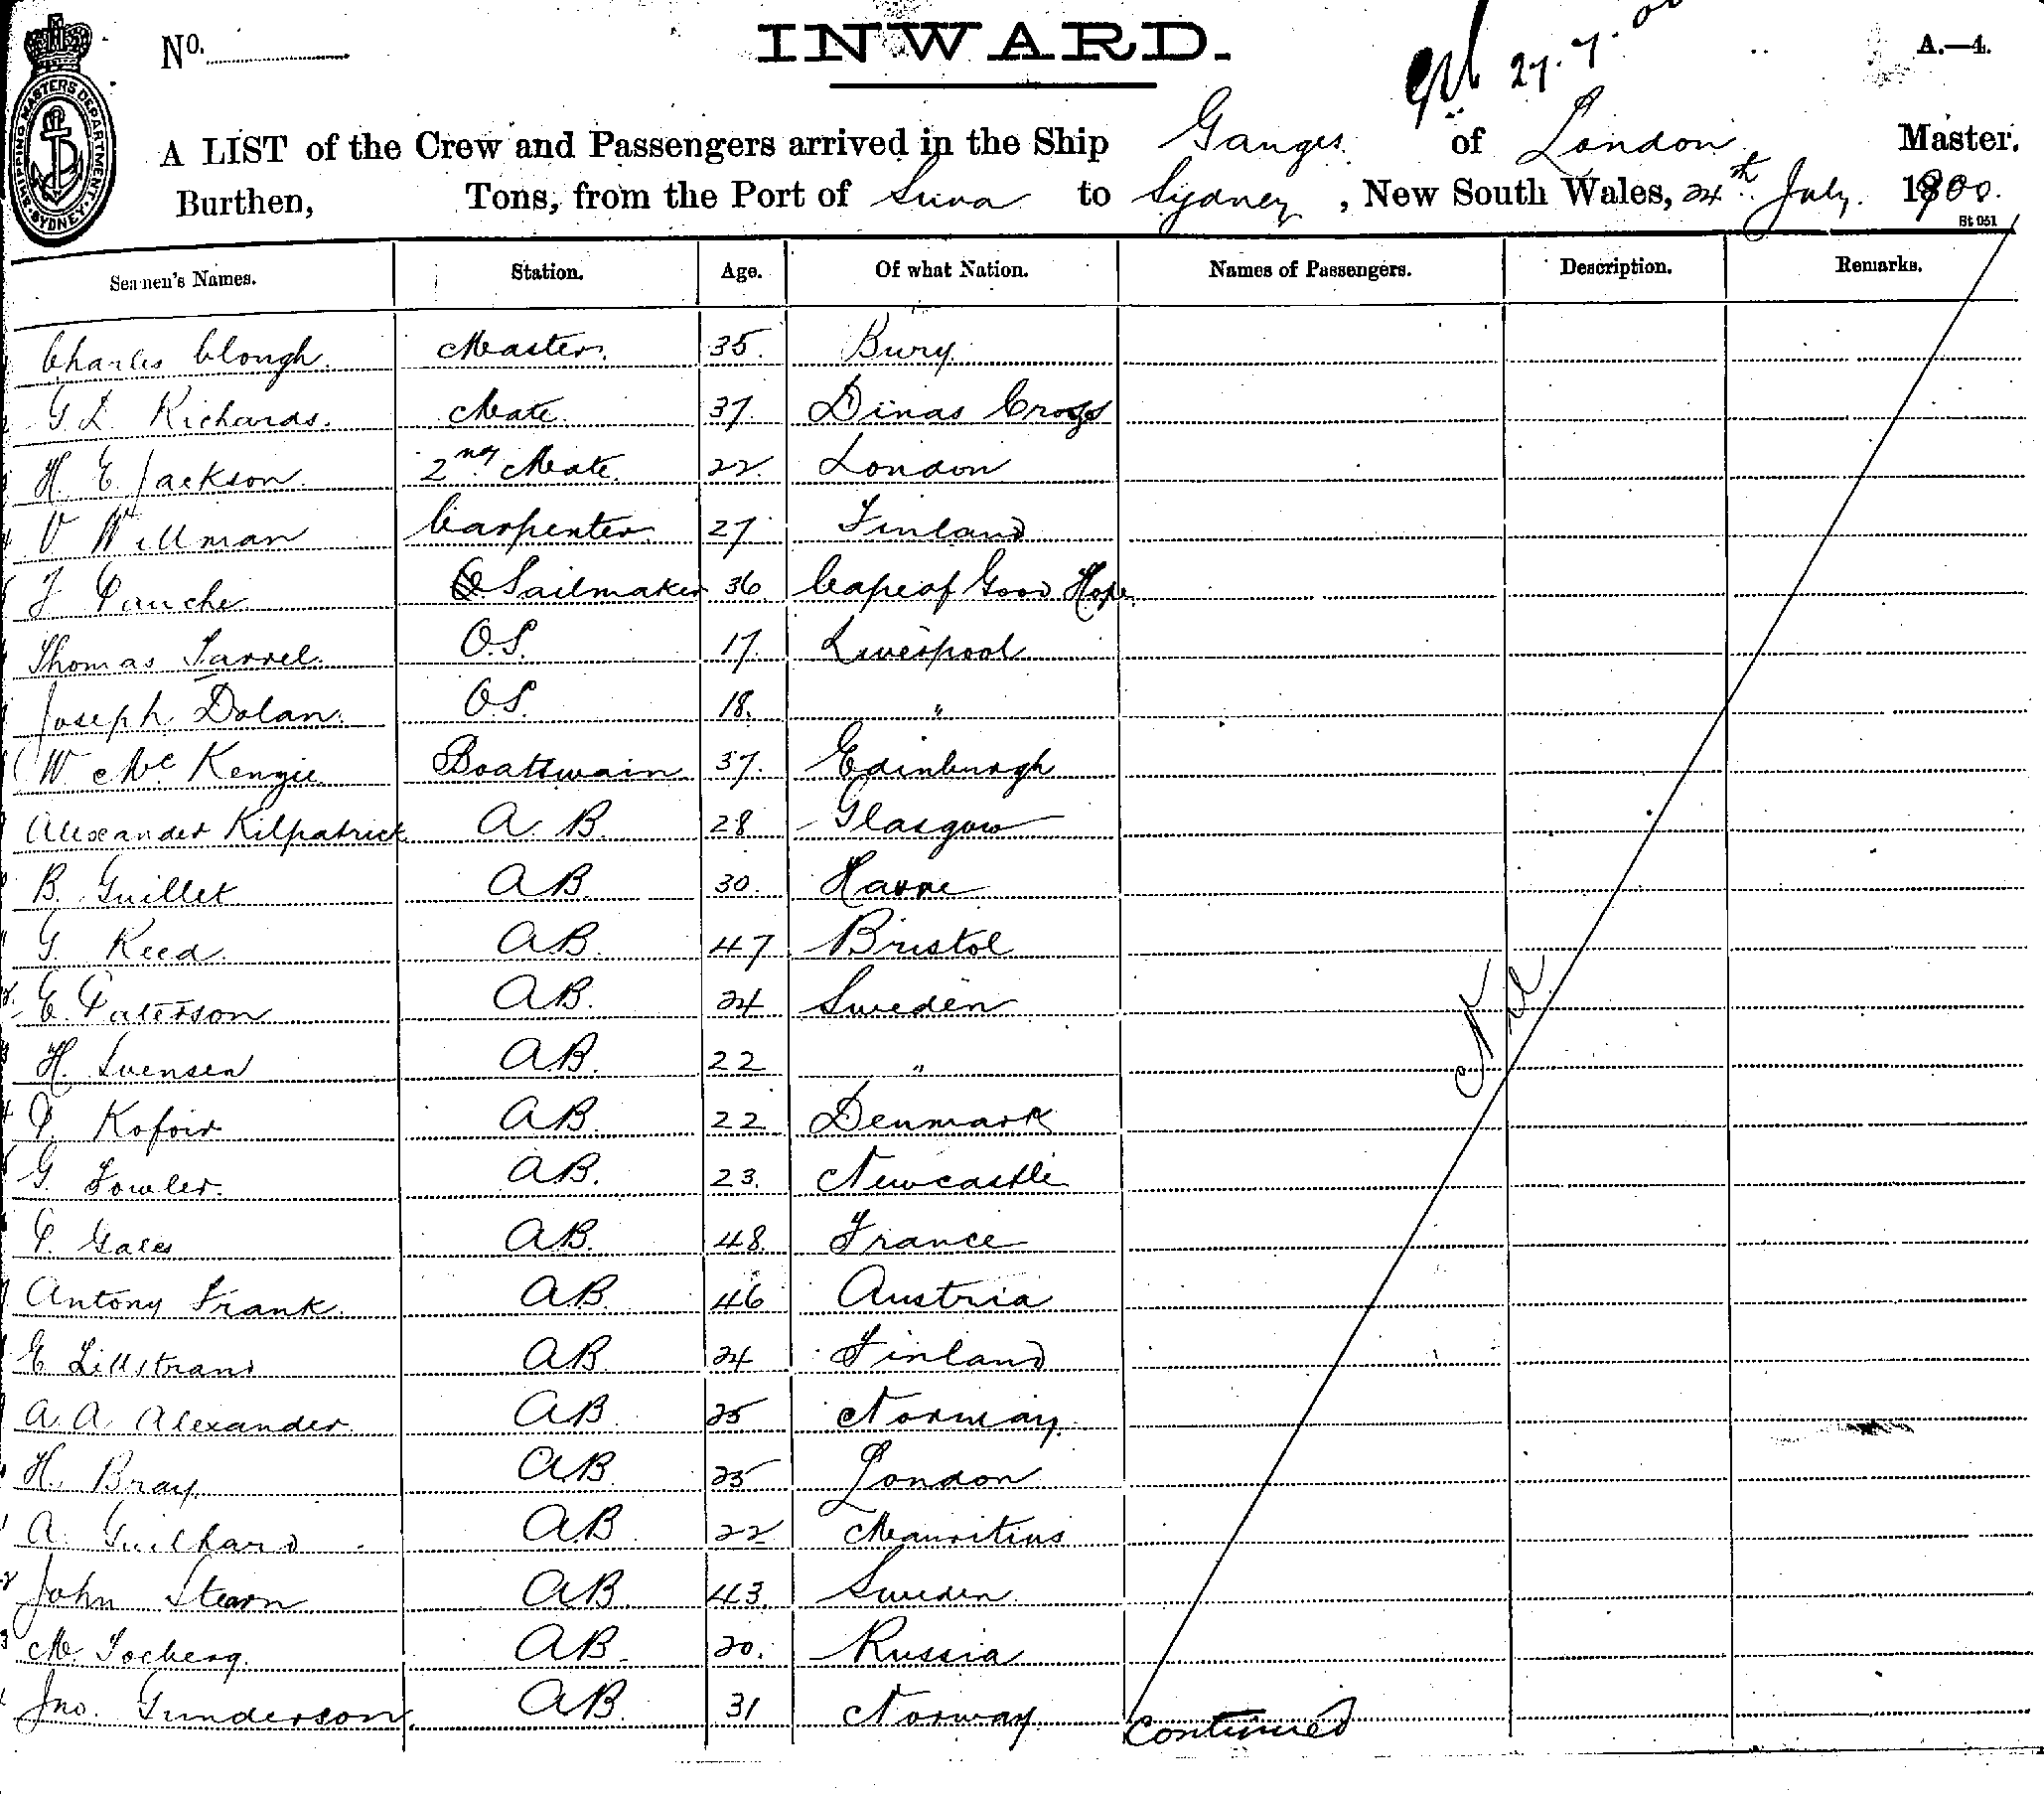 No.
INWARD.
27.7.00
A.—4.
SHIPPING MASTERS DEPARTMENT. SYDNEY.
A LIST of the Crew and Passengers arrived in the Ship Ganges of London Master,
Burthen, Tons, from the Port of Suva to Sydney, New South Wales, 24th July 1900.
Bt 051
Seamen's Names. Station. Age. Of what Nation. Names of Passengers. Description. Remarks.
Charles Clough. Master. 35. Bury.
G. L. Richards. Mate. 37. Dinas Cross
H. E. Jackson. 2nd Mate. 22. London
V Willman Carpenter 27 Finland
J Panche Sailmaker 36. Cape of Good Hope.
Thomas Farrel. O.S. 17. Liverpool
Joseph Dolan. O.S. 18. "
W. McKenzie Boatswain 37. Edinburgh
Alexander Kilpatrick A. B. 28 Glasgow
B. Guillet A.B. 30. Havre
G. Reed. A.B. 47 Bristol
E. Paterson A.B. 24 Sweden
H. Svensen A.B. 22 "
P. Kofoid A.B. 22 Denmark
G. Fowler. A.B. 23. Newcastle
P. Gales A.B. 48. France
Antony Frank. A.B. 46 Austria
E Lillstrand A.B 24 Finland
A. A. Alexander. A.B. 25 Norway.
H. Bray. A.B. 25 London
A. Guilhard A.B. 22 Mauritius
John Stearn A.B. 43. Sweden.
M. A.B. 20. Russia
Jno. Gunderson. A.B. 31 Norway
Nil
Continued